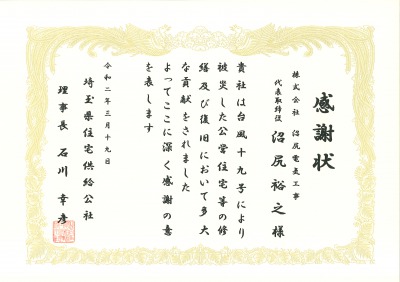 感謝状
株式会社 沼尻電気工事
代表取締役 沼尻裕之様
貴社は台風十九号により
被災した公営住宅等の修
繕及び復旧において多大
な貢献をされました
よってここに深く感謝の意
を表します
令和二年三月十九日
埼玉県住宅供給公社
理事長 石川幸彦